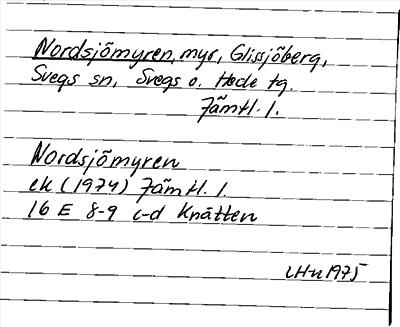 Nordsjömyren, myr, Glissjöberg,
Svegs sn, Svegs o. Hede tg.
Jämtl. l.
Nordsjömyren
ek (1974) Jämtl. l.
16 E 8-9 c-d Knätten
LHn 1975